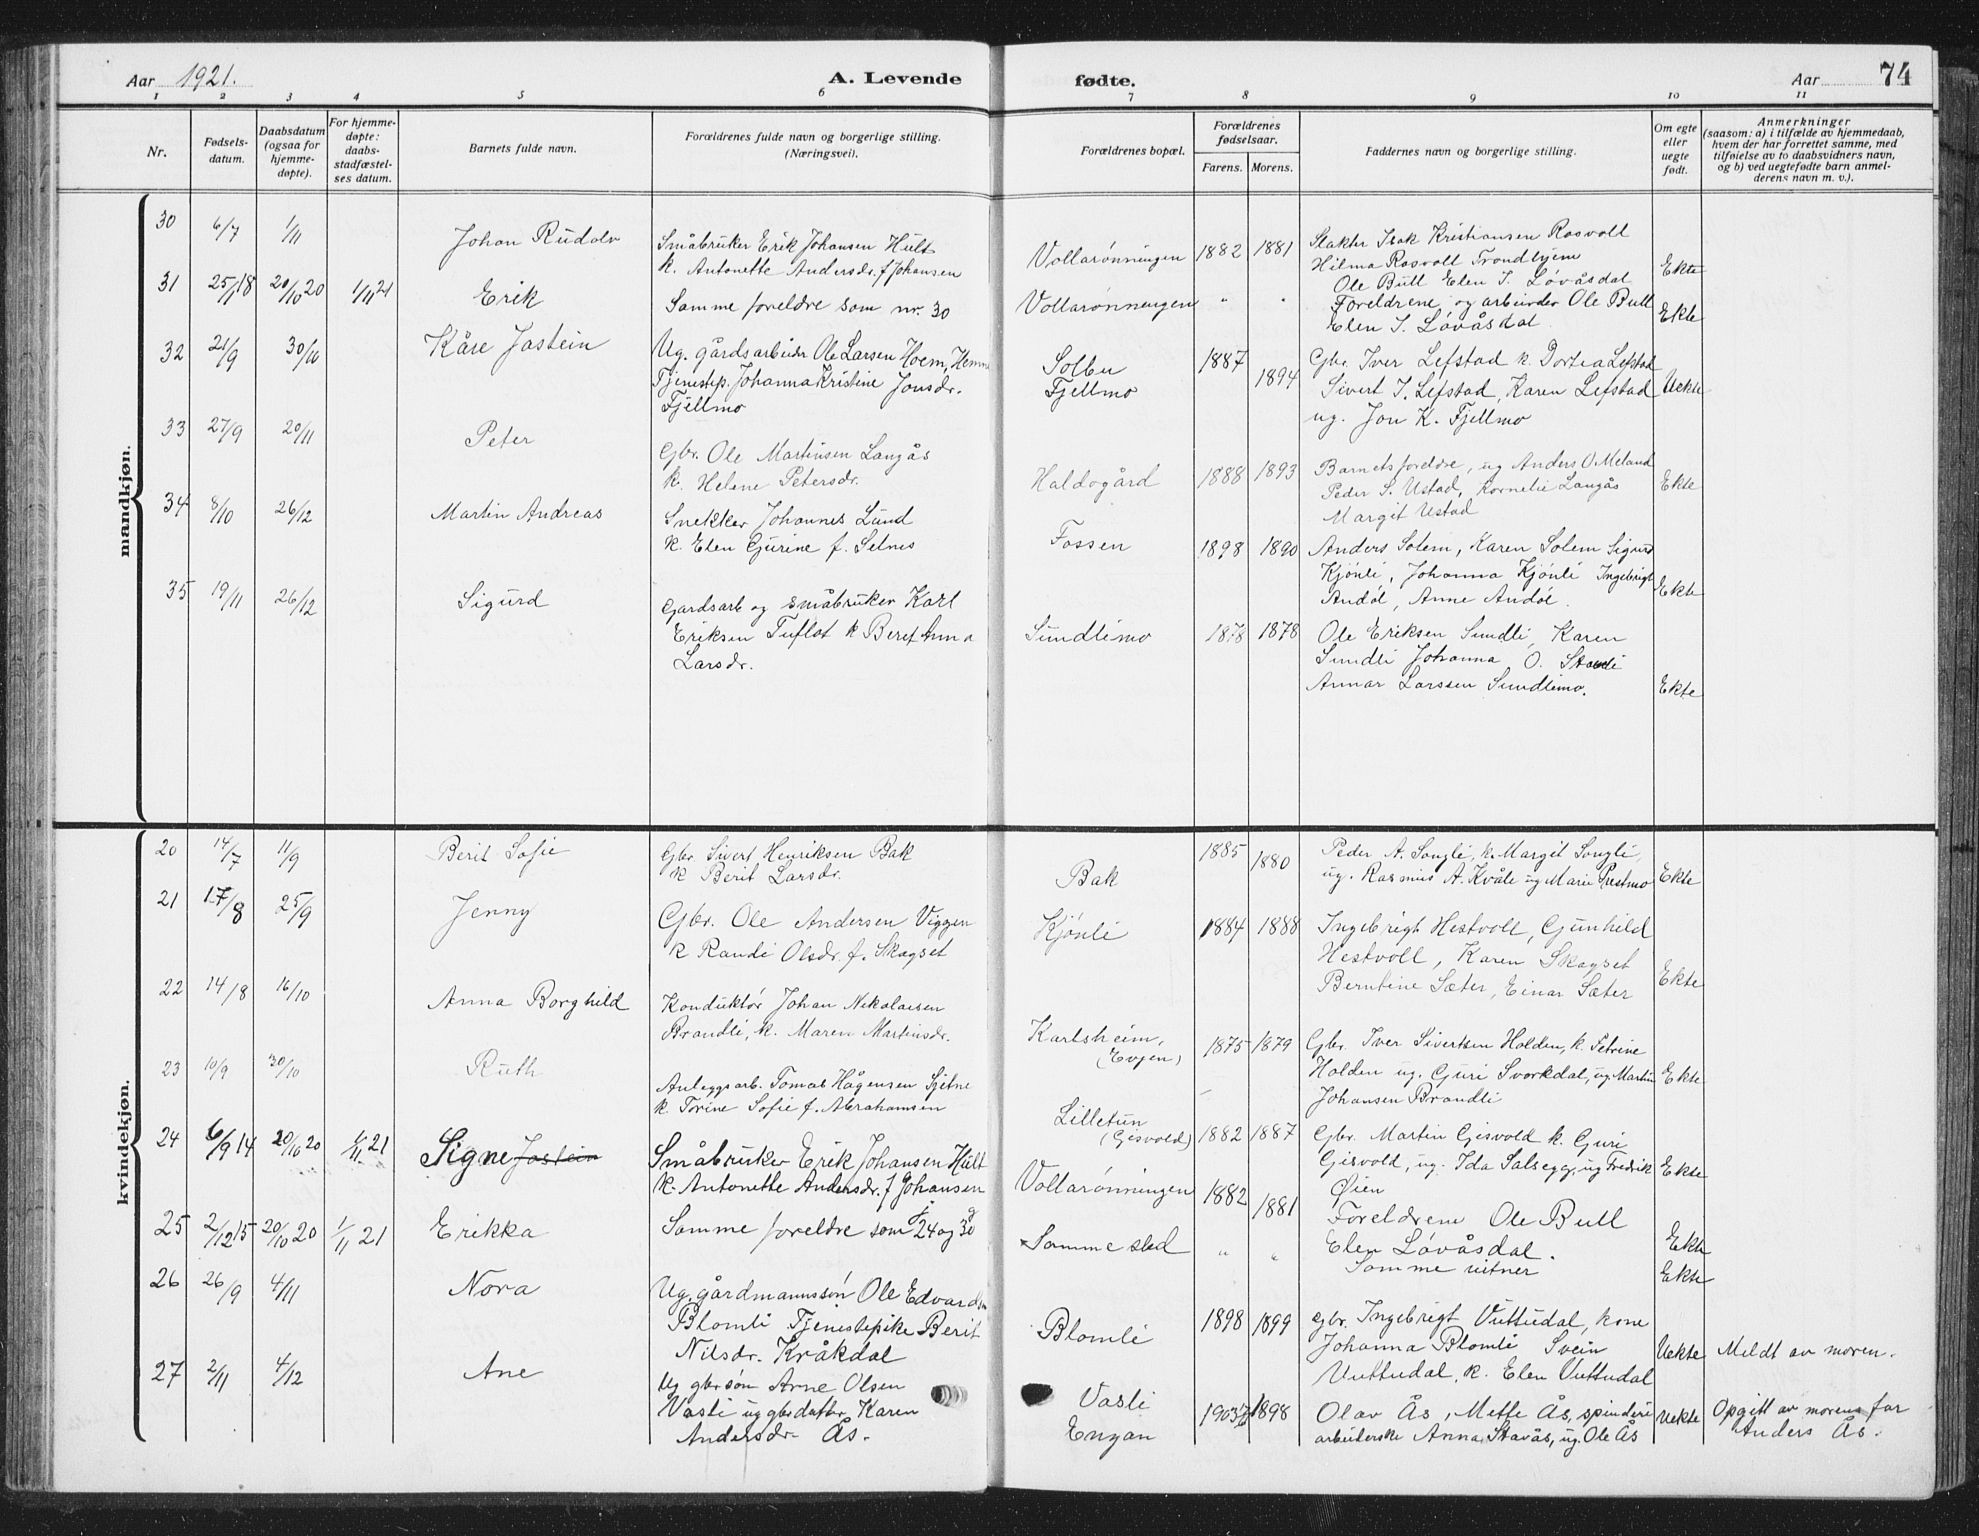 Aar 1921. A. Levende fødte. Aar 74
1 2 3 4 5 6 7 8 9 10 11
Nr.
Fødsels-
datum.
Daabsdatum
(ogsaa for
hjemme-
døpte).
For hjemme-
døpte:
daabs-
stadfæstel-
ses datum.
Barnets fulde navn.
Forældrenes fulde navn og borgerlige stilling.
(Næringsvei).
Forældrenes bopæl.
Forældrenes
fødselsaar.
Farens. Morens.
Faddernes navn og borgerlige stilling.
Om egte
eller
uegte
født.
Anmerkninger
(saasom: a) i tilfælde av hjemmedaab,
hvem der har forrettet samme, med
tilføielse av to daabsvidners navn,
og b) ved uegtefødte barn anmel-
derens navn m. v.).
mandkjøn.
30 6/7 1/11 Johan Rudolv
Småbruker Erik Johansen Hult
k. Antonette Andersdr. f Johansen
Vollarønningen 1882 1881
Slakter Isak Kristiansen Rosvoll
Hilma Rosvoll Trondhjem
Ole Bull Elen I. Løvåsdal
Ekte
31 25/1 18 20/10 20 1/11 21 Erik
Samme foreldre som nr. 30
Vollarønningen " "
Foreldrene og arbeider Ole Bull
Elen I. Løvåsdal
Ekte
32 21/9 30/10 Kåre Jostein
Ug. gårdsarbeidr Ole Larsen Hoem, Hemne
Tjenestep. Johanna Kristine Jonsdr.
Fjellmo
Solbu
Fjellmo
1887 1894
Gbr. Iver Lefstad k. Dortea Lefstad
Sivert I. Lefstad, Karen Lefstad
ug. Jon K. Fjellmo
Uekte
33 27/9 20/11 Peter
Gbr. Ole Martinsen Langås
k. Helene Petersdr.
Haldogård 1888 1893
Barnets foreldre, ug Anders O. Meland
Peder S. Ustad, Kornelie Langås
Margit Ustad
Ekte
34 8/10 26/12 Martin Andreas
Snekker Johannes Lund
k. Elen Gurine f. Selnes
Fossen 1898 1890
Anders Solem, Karen Solem Sigurd
Kjønli, Johanna Kjønli Ingebrigt
Andøl, Anne Andøl.
Ekte
35 19/11 26/12 Sigurd
Gardsarb og småbruker Karl
Eriksen Tuflot k Beret Anna
Larsdr.
Sundlimo 1878 1878
Ole Eriksen Sundli, Karen
Sundli Johanna O.
Annar Larssen Sundlimo.
Ekte
kvindekjøn.
20 14/7 11/9 Berit Sofie
Gbr. Sivert Henriksen Bak
k Berit Larsdr.
Bak 1885 1880
Peder A. Songli, k. Margit Songli,
ug. Rasmus A. Kvåle ug Marie Prestmo
Ekte
21 17/8 25/9 Jenny
Gbr. Ole Andersen Viggen
k Randi Olsdr. f. Skagset
Kjønli 1884 1888
Ingebrigt Hestvoll, Gunhild
Hestvoll, Karen Skagset
Berntine Sæter, Einar Sæter
Ekte
22 14/8 16/10 Anna Borghild
Konduktør Johan Nikolaisen
Brandli, k. Maren Martinsdr.
Karlsheim,
(Evjen)
1875 1879
Gbr. Iver Sivertsen Holden, k. Petrine
Holden ug. Guri Svorkdal, ug. Martin
Johansen Brandli
Ekte
23 10/9 30/10 Ruth
Anleggsarb. Tomas Hågensen Sjetne
k. Torine Sofie f. Abrahamsen
Lilletun
(Gisvold)
1882 1887
Gbr. Martin Gisvold k. Guri
Gisvold, ug. Ida Salsegg, ug Fredrik
Øien
Ekte
24 6/9 14 20/10 20 1/11 21 Signe Jostein
Småbruker Erik Johansen Hult
k. Antonette Andersdr. f Johansen
Vollarønningen 1882 1881
Foreldrene Ole Bull
Elen Løvåsdal.
Ekte
25 2/12 15 20/10 20 1/11 21 Erikka
Samme foreldre som 24 og 30
Samme sted " "
Samme vitner
Ekte
26 26/9 4/11 Nora
Ug. gårdmannssøn Ole Edvardsen
Blomli Tjenestepike Berit
Nilsdr. Kråkdal
Blomli 1898 1899
gbr. Ingebrigt Vuttudal, kone
Johanna Blomli Svein
Vuttudal, k. Elen Vuttudal
Uekte Meldt av moren.
27 2/11 4/12 Ane
Ug gbr søn Arne Olsen
Vasli ug gbr datter Karen
Andersdr Ås.
Vasli
Engan
1903 1898
Olav Ås, Mette Ås, spinderi
arbeiderske Anna Stavås, ug. Ole Ås
Uekte Opgitt av morens far
Anders Ås.